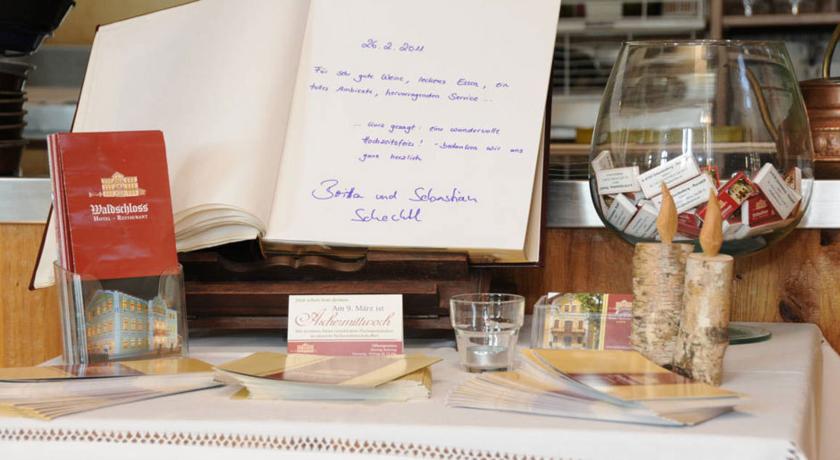 26.2.2011
Für sehr gute Weine, leckeres Essen, ein
tolles Ambiente, hervorragenden Service ...
... kurz gesagt: eine wundervolle
Hochzeitsfeier! - bedanken wir uns
ganz herzlich
Britta und Sebastian
Schechtl
Waldschloss
HOTEL - RESTAURANT
Am 9. März ist
Aschermittwoch